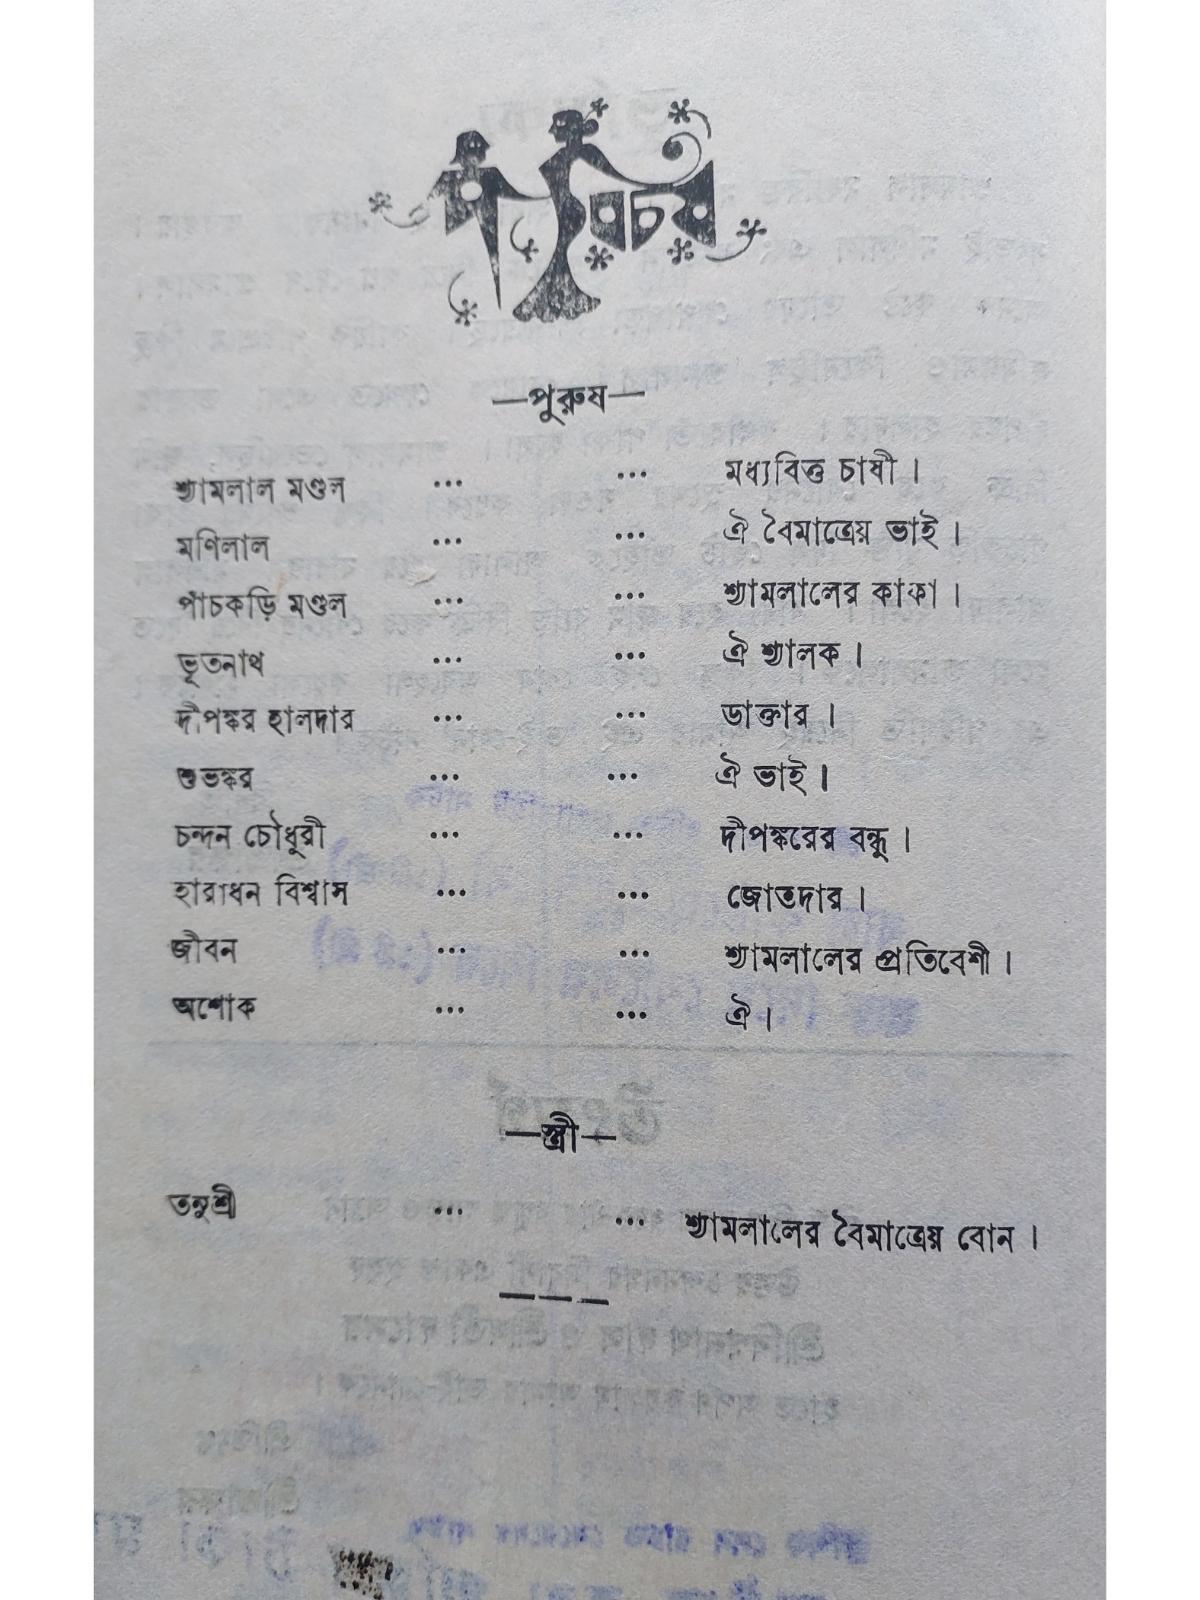 পরিচয়
—পুরুষ—
শ্যামলাল মণ্ডল ... ... মধ্যবিত্ত চাষী ।
মণিলাল ... ... ঐ বৈমাত্রেয় ভাই ।
পাঁচকড়ি মণ্ডল ... ... শ্যামলালের কাকা ।
ভূতনাথ ... ... ঐ শ্যালক ।
দীপঙ্কর হালদার ... ... ডাক্তার ।
শুভঙ্কর ... ... ঐ ভাই ।
চন্দন চৌধুরী ... ... দীপঙ্করের বন্ধু ।
হারাধন বিশ্বাস ... ... জোতদার ।
জীবন ... ... শ্যামলালের প্রতিবেশী ।
অশোক ... ... ঐ ।
—স্ত্রী—
তনুশ্রী ... ... শ্যামলালের বৈমাত্রেয় বোন ।